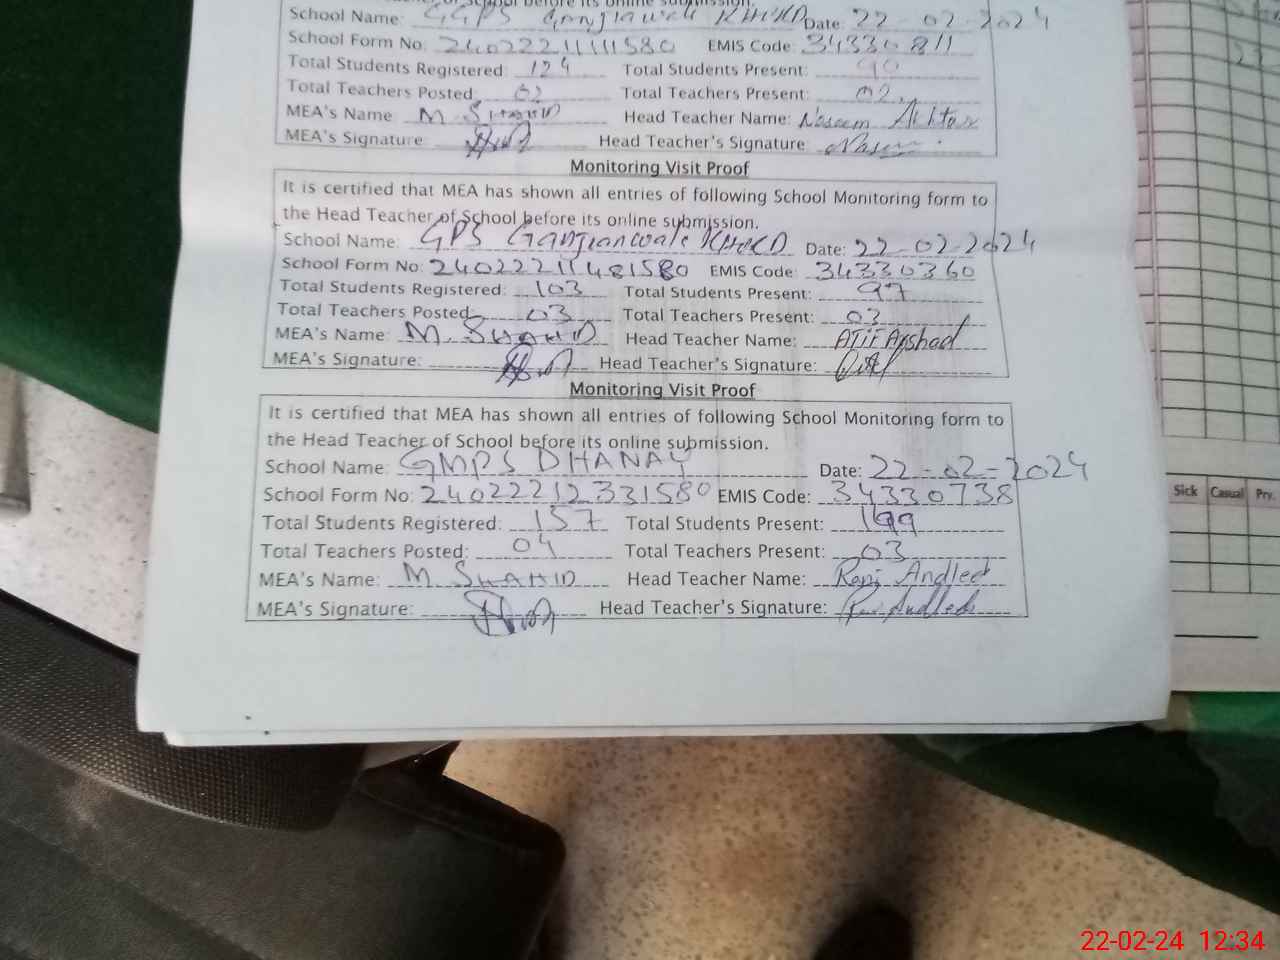 of School before its online submission.
School Name: GGPS Gangianwali KHURD Date: 22-02-2024
School Form No: 24022211111580 EMIS Code: 34330811
Total Students Registered: 124 Total Students Present: 90
Total Teachers Posted: 02 Total Teachers Present: 02
MEA's Name: M. SHAHID Head Teacher Name: Naseem Akhtar
MEA's Signature: Head Teacher's Signature: Naseem
Monitoring Visit Proof
It is certified that MEA has shown all entries of following School Monitoring form to
the Head Teacher of School before its online submission.
School Name: GPS Gangianwali KHURD Date: 22-02-2024
School Form No: 24022211481580 EMIS Code: 34330360
Total Students Registered: 103 Total Students Present: 97
Total Teachers Posted: 03 Total Teachers Present: 03
MEA's Name: M. SHAHID Head Teacher Name: Atif Arshad
MEA's Signature: Head Teacher's Signature:
Monitoring Visit Proof
It is certified that MEA has shown all entries of following School Monitoring form to
the Head Teacher of School before its online submission.
School Name: GMPS DHANAY Date: 22-02-2024
School Form No: 24022212331580 EMIS Code: 34330738
Total Students Registered: 157 Total Students Present:
Total Teachers Posted: 04 Total Teachers Present: 03
MEA's Name: M. SHAHID Head Teacher Name: Rani Andleeb
MEA's Signature: Head Teacher's Signature: R. Andleeb
Sick Casual Prv.
22-02-24 12:34